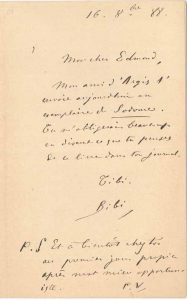 16. 8bre 88.
Mon cher Edmond,
Mon ami d'Argis t'
envoie aujourd'hui un
exemplaire de Sodome.
Tu m'obligerais beaucoup
en disant ce que tu penses
de ce livre dans ton journal.
Tibi.
Bibi
P.S Et à bientôt
au premier jour
après
P.V.